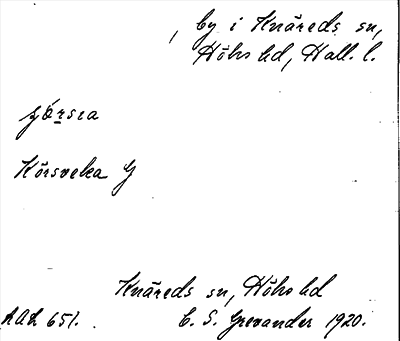 , by i Knäreds sn,
Höks hd, Hall. l.
Körsveka G
Knäreds sn, Höks hd
AAL 651. E. S. Grevander 1920.